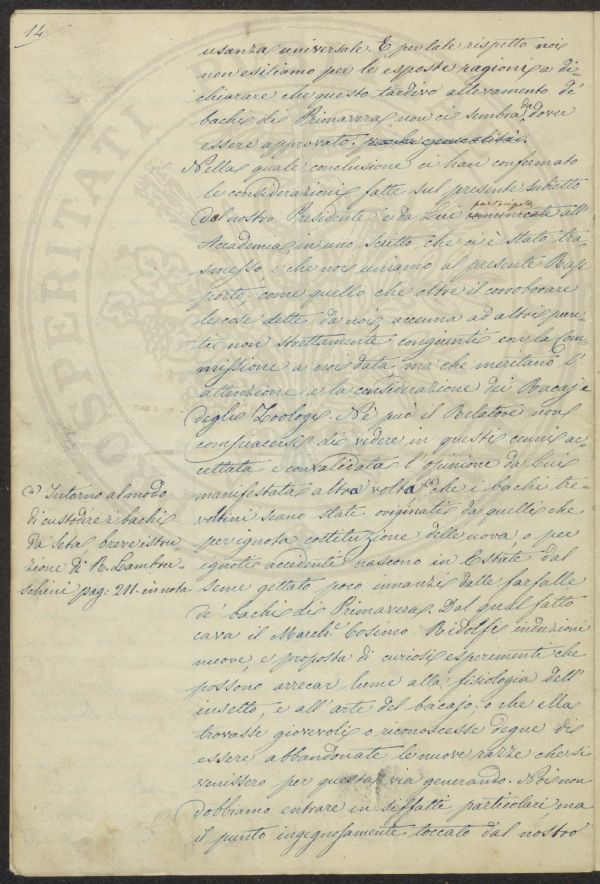 14
usanza universale. E per tale rispetto noi
non esitiamo per le esposte ragioni a di-
chiarare che questo tardivo allevamento de'
bachi di Primavera non ci sembra da dover
essere approvato.
Nella quale conclusione ci han confermato
le considerazioni fatte sul presente subietto
dal nostro Presidente e da Lui partecipate comunicate all'
Accademia in uno scritto che ci è stato tra-
smesso, e che noi uniamo al presente Rap-
porto; come quello che oltre il corroborare
le cose dette da noi, accenna ad altri pun-
ti non strettamente congiunti con la Com-
missione a noi data, ma che meritano l'
attenzione e la considerazione dei Bacaj e
degli Zoologi. Nè può il Relatore non
compiacersi di vedere in questi cenni ac-
cettata e convalidata l'opinione da Lui
manifestata altra volta (a) che i bachi tre-
voltini siano stati originati da quelli che
per ignota costituzione delle uova, o per
ignoti accidenti nascono in Estate dal
seme gettato poco innanzi dalle farfalle
de' bachi di Primavera. Dal qual fatto
cava il March.e Cosimo Ridolfi induzioni
nuove, e proposta di curiosi esperimenti che
possono arrecar lume alla fisiologia dell'
insetto, e all'arte del bacajo: o che ella
trovasse giovevoli o riconoscesse degne di
essere abbandonate le nuove razze che si
venissero per questa via generando. Noi non
dobbiamo entrare in siffatti particolari ma
il punto ingegnosamente toccato dal nostro
(a) Intorno al modo
di custodire i bachi
da seta, breve istru-
zione di R. Lambru-
schini pag: 211. in nota.